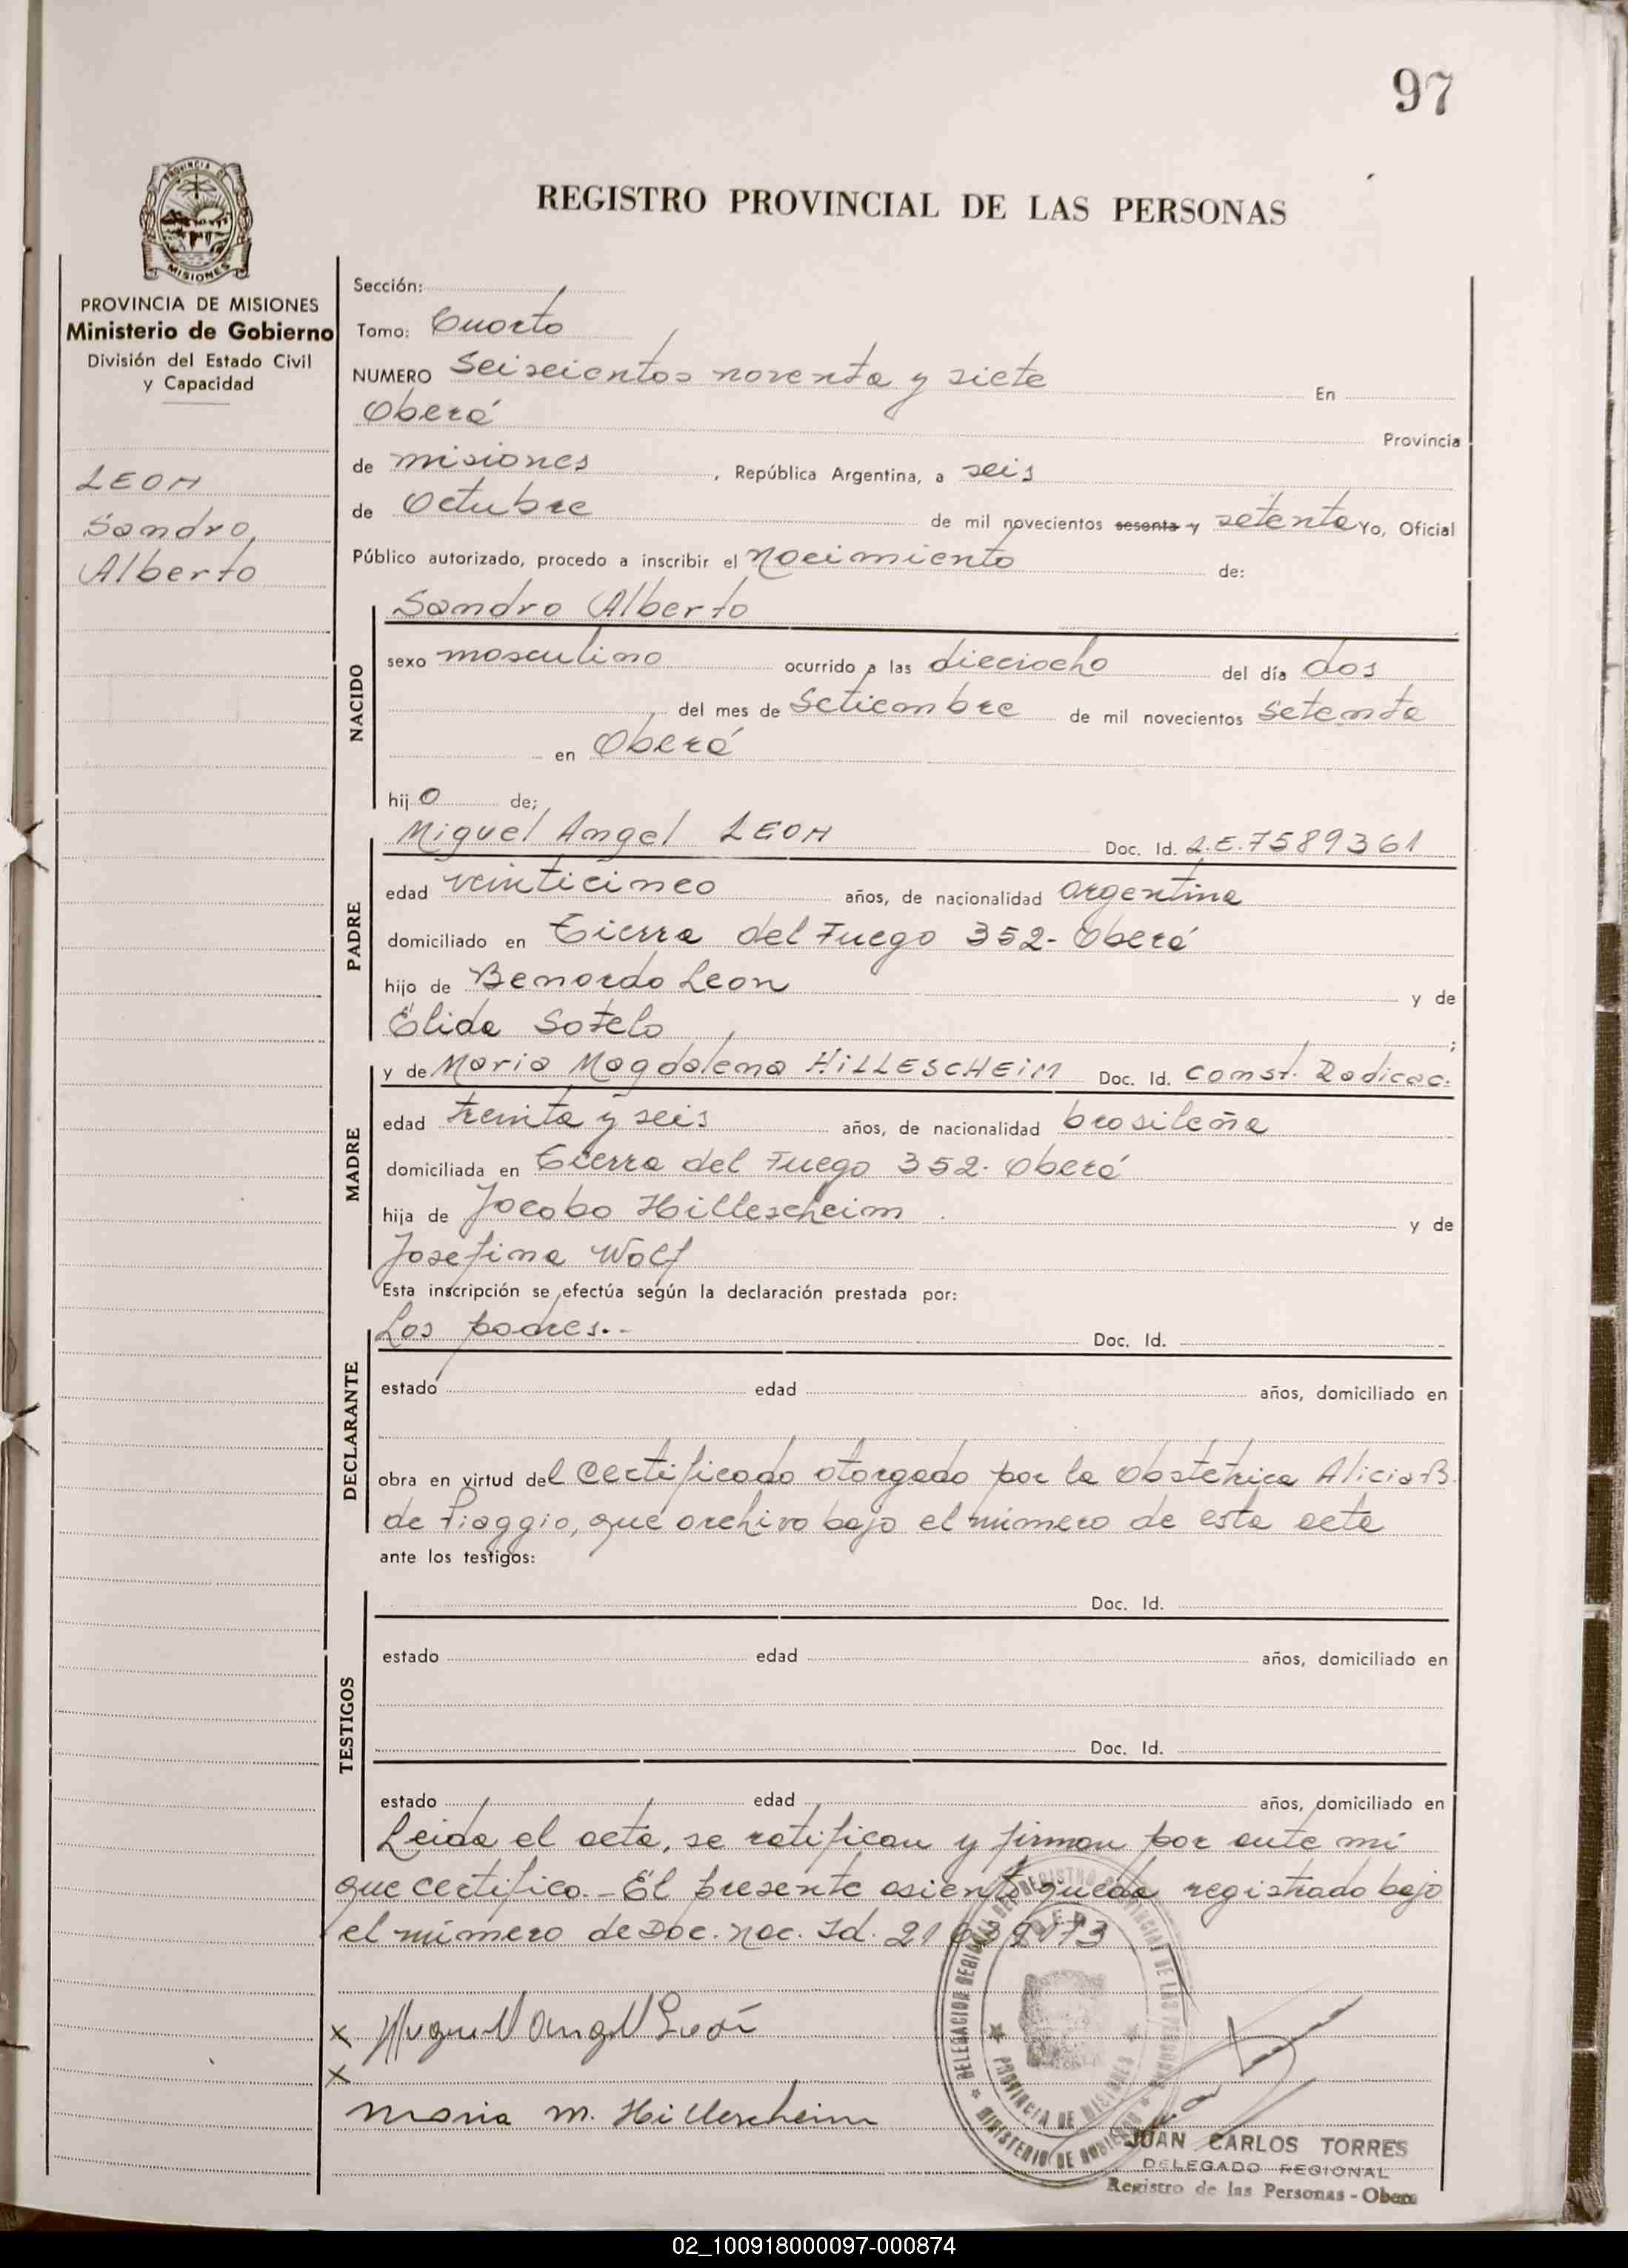 97
REGISTRO PROVINCIAL DE LAS PERSONAS
PROVINCIA DE
MISIONES
PROVINCIA DE MISIONES
Ministerio de Gobierno
División del Estado Civil
y Capacidad
LEON
Sandro
Alberto
Sección:
Tomo: Cuarto
NUMERO Seiscientos noventa y siete En
Oberá Provincia
de misiones, República Argentina, a seis
de Octubre de mil novecientos sesenta y setenta Yo, Oficial
Público autorizado, procedo a inscribir el Nacimiento de:
Sandro Alberto
NACIDO
sexo masculino ocurrido a las dieciocho del día dos
del mes de Setiembre de mil novecientos setenta
en Oberá
hijo de:
PADRE
Miguel Angel LEON Doc. Id. L.E. 7589361
edad veinticinco años, de nacionalidad argentina
domiciliado en Tierra del Fuego 352- Oberá
hijo de Bernardo Leon y de
Elida Sotelo;
MADRE
y de Maria Magdalena HILLESCHEIM Doc. Id. Const. Radicac.
edad treinta y seis años, de nacionalidad brasileña
domiciliada en Tierra del Fuego 352- Oberá
hija de Jacobo Hillescheim y de
Josefina Wolf
Esta inscripción se efectúa según la declaración prestada por:
DECLARANTE
Los padres.- Doc. Id.
estado edad años, domiciliado en
obra en virtud del Certificado otorgado por la obstetrica Alicia B.
de Piaggio, que archivo bajo el número de esta acta
ante los testigos:
TESTIGOS
Doc. Id.
estado edad años, domiciliado en
Doc. Id.
estado edad años, domiciliado en
Leida el acta, se ratifican y firman por ante mi
que certifico.- El presente asiento queda registrado bajo
el número de Doc. Nac. Id.
x Miguel Angel León
x
Maria M. Hillescheim
PROVINCIA DE MISIONES
MINISTERIO DE GOBIERNO
JUAN CARLOS TORRES
DELEGADO REGIONAL
Registro de las Personas - Obera
02_100918000097-000874